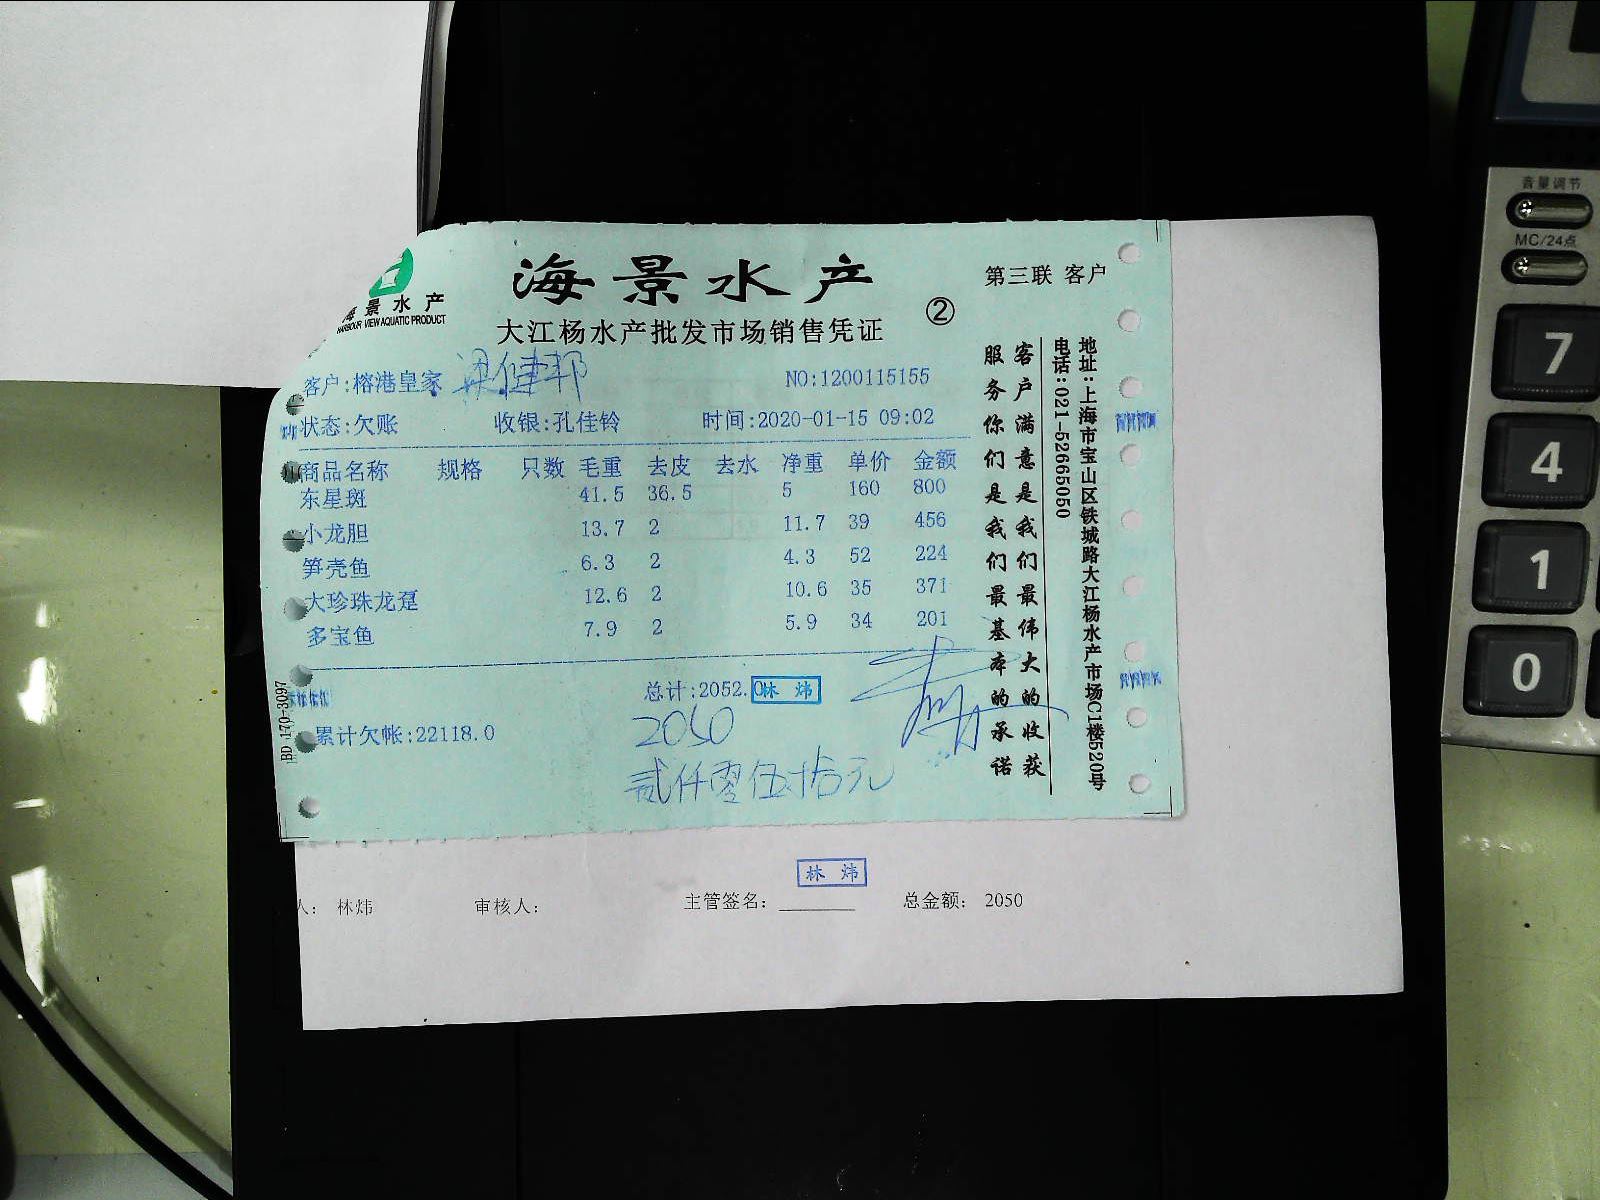 海景水产
HARBOUR VIEW AQUATIC PRODUCT
海景水产
大江杨水产批发市场销售凭证
②
第三联 客户
客户:榕港皇家 梁健邦
NO:1200115155
状态:欠账 收银:孔佳铃 时间:2020-01-15 09:02
商品名称 规格 只数 毛重 去皮 去水 净重 单价 金额
东星斑 41.5 36.5 5 160 800
小龙胆 13.7 2 11.7 39 456
笋壳鱼 6.3 2 4.3 52 224
大珍珠龙趸 12.6 2 10.6 35 371
多宝鱼 7.9 2 5.9 34 201
总计:2052.0
林 炜
累计欠帐:22118.0
2050
贰仟零伍拾元
客户满意是我们最伟大的收获
服务你们是我们最基本的承诺
地址:上海市宝山区铁城路大江杨水产市场C1楼520号
电话:021-52665050
BD 170-3097
林 炜
人: 林炜 审核人: 主管签名: 总金额: 2050
音量调节
MC/24点
7
4
1
0